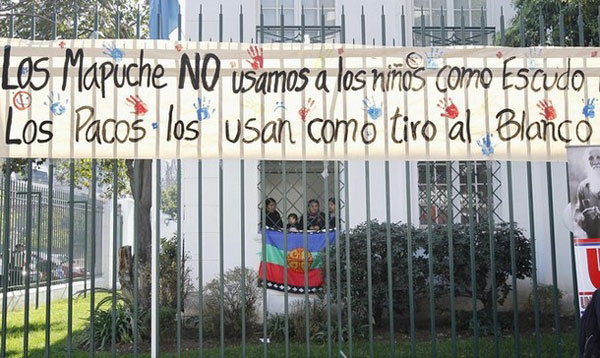 LOS MAPUCHE NO usamos a los niños como Escudo
Los Pacos los usan como tiro al Blanco